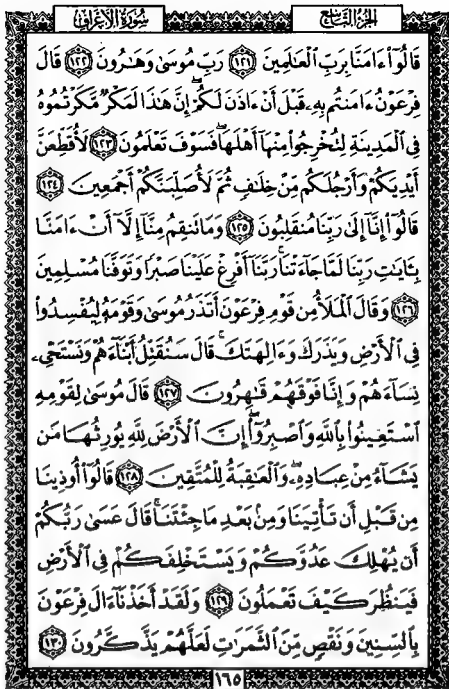 الجزء التاسع
سورة الأعراف
قَالُوٓا۟ ءَامَنَّا بِرَبِّ ٱلْعَـٰلَمِينَ ١٢١ رَبِّ مُوسَىٰ وَهَـٰرُونَ ١٢٢ قَالَ
فِرْعَوْنُ ءَامَنتُم بِهِۦ قَبْلَ أَنْ ءَاذَنَ لَكُمْ ۖ إِنَّ هَـٰذَا لَمَكْرٌ مَّكَرْتُمُوهُ
فِى ٱلْمَدِينَةِ لِتُخْرِجُوا۟ مِنْهَآ أَهْلَهَا ۖ فَسَوْفَ تَعْلَمُونَ ١٢٣ لَأُقَطِّعَنَّ
أَيْدِيَكُمْ وَأَرْجُلَكُم مِّنْ خِلَـٰفٍ ثُمَّ لَأُصَلِّبَنَّكُمْ أَجْمَعِينَ ١٢٤
قَالُوٓا۟ إِنَّآ إِلَىٰ رَبِّنَا مُنقَلِبُونَ ١٢٥ وَمَا تَنقِمُ مِنَّآ إِلَّآ أَنْ ءَامَنَّا
بِـَٔايَـٰتِ رَبِّنَا لَمَّا جَآءَتْنَا ۚ رَبَّنَآ أَفْرِغْ عَلَيْنَا صَبْرًا وَتَوَفَّنَا مُسْلِمِينَ
١٢٦ وَقَالَ ٱلْمَلَأُ مِن قَوْمِ فِرْعَوْنَ أَتَذَرُ مُوسَىٰ وَقَوْمَهُۥ لِيُفْسِدُوا۟
فِى ٱلْأَرْضِ وَيَذَرَكَ وَءَالِهَتَكَ ۚ قَالَ سَنُقَتِّلُ أَبْنَآءَهُمْ وَنَسْتَحْىِۦ
نِسَآءَهُمْ وَإِنَّا فَوْقَهُمْ قَـٰهِرُونَ ١٢٧ قَالَ مُوسَىٰ لِقَوْمِهِ
ٱسْتَعِينُوا۟ بِٱللَّهِ وَٱصْبِرُوٓا۟ ۖ إِنَّ ٱلْأَرْضَ لِلَّهِ يُورِثُهَا مَن
يَشَآءُ مِنْ عِبَادِهِۦ ۖ وَٱلْعَـٰقِبَةُ لِلْمُتَّقِينَ ١٢٨ قَالُوٓا۟ أُوذِينَا
مِن قَبْلِ أَن تَأْتِيَنَا وَمِنۢ بَعْدِ مَا جِئْتَنَا ۚ قَالَ عَسَىٰ رَبُّكُمْ
أَن يُهْلِكَ عَدُوَّكُمْ وَيَسْتَخْلِفَكُمْ فِى ٱلْأَرْضِ
فَيَنظُرَ كَيْفَ تَعْمَلُونَ ١٢٩ وَلَقَدْ أَخَذْنَآ ءَالَ فِرْعَوْنَ
بِٱلسِّنِينَ وَنَقْصٍ مِّنَ ٱلثَّمَرَٰتِ لَعَلَّهُمْ يَذَّكَّرُونَ ١٣٠
١٦٥